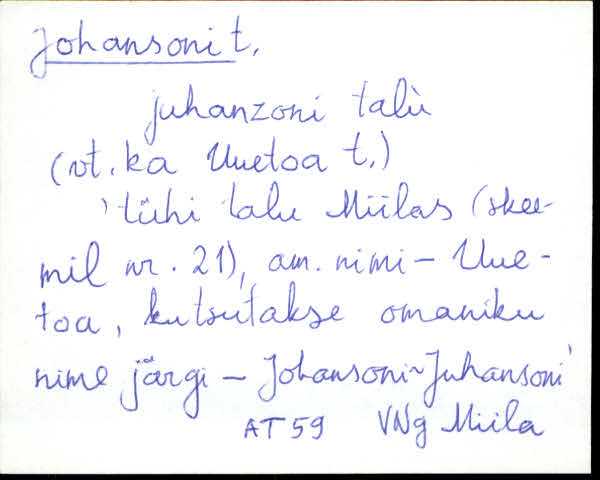 Johansoni t.
juhanzoni talù
(vt. ka Uuetoa t.)
' tühi talu Miilas (skee-
mil nr. 21), am. nimi – Uue-
toa, kutsutakse omaniku
nime järgi – Johansoni ~ Juhansoni'
AT 59 VNg Miila